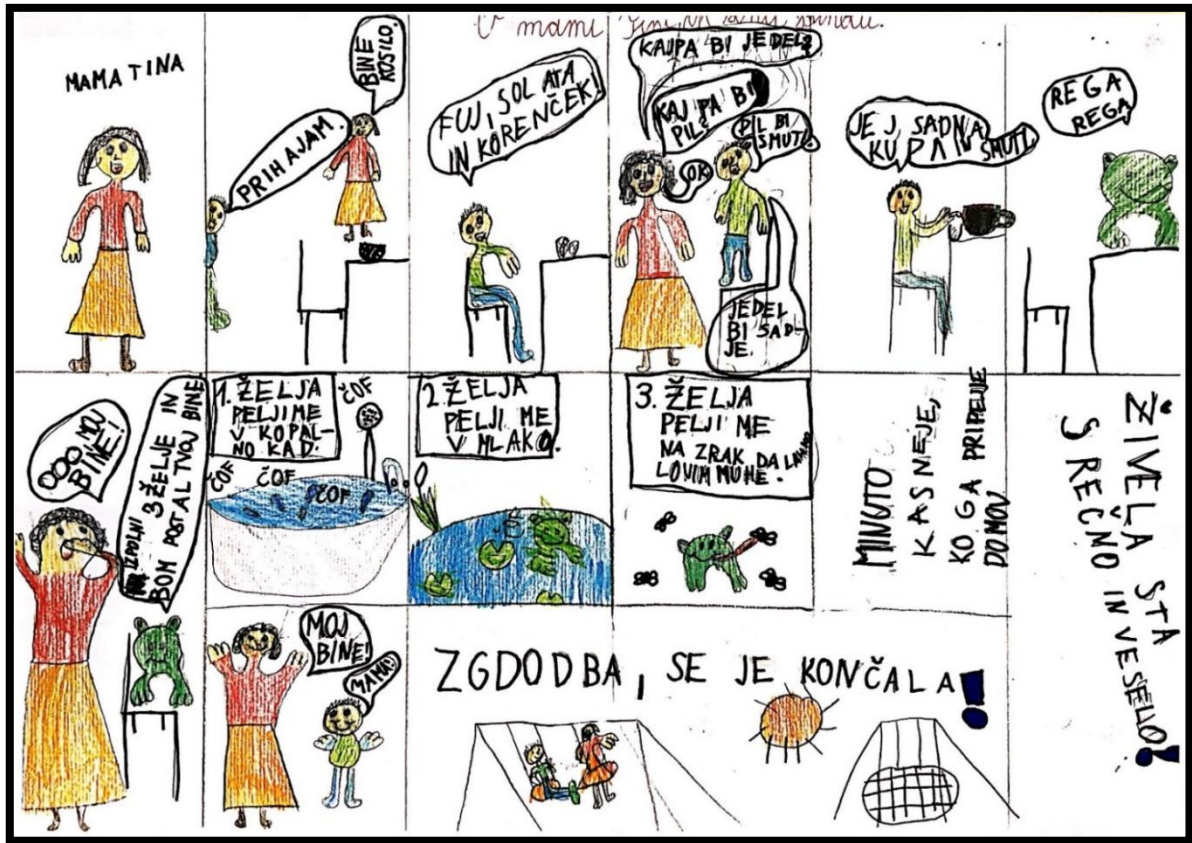 V mami Tini
MAMA TINA
BINE
KOSILO.
PRIHAJAM.
FUJ, SOLATA
IN KORENČEK!
KAJPA BI JEDEL?
KAJ PA BI
PIL?
PIL BI
SMUTI.
OK
JEDEL
BI SAD-
JE.
JEJ SADNA
KUPA IN SMUTI.
REGA
REGA
OOO MOJ
BINE!
IZPOLNI 3 ŽELJE IN
BOM POSTAL TVOJ BINE
1. ŽELJA
PELJI ME
V KOPAL-
NO KAD.
ČOF
ČOF
ČOF
ČOF
2. ŽELJA
PELJI ME
V MLAKO.
3. ŽELJA
PELJI ME
NA ZRAK DA
LOVIM MUHE.
MINUTO
KASNEJE,
KO GA PRIPELJE
DOMOV
ŽIVELA STA
SREČNO IN VESELO!
MOJ
BINE!
MAMA!
ZGDODBA, SE JE KONČALA!